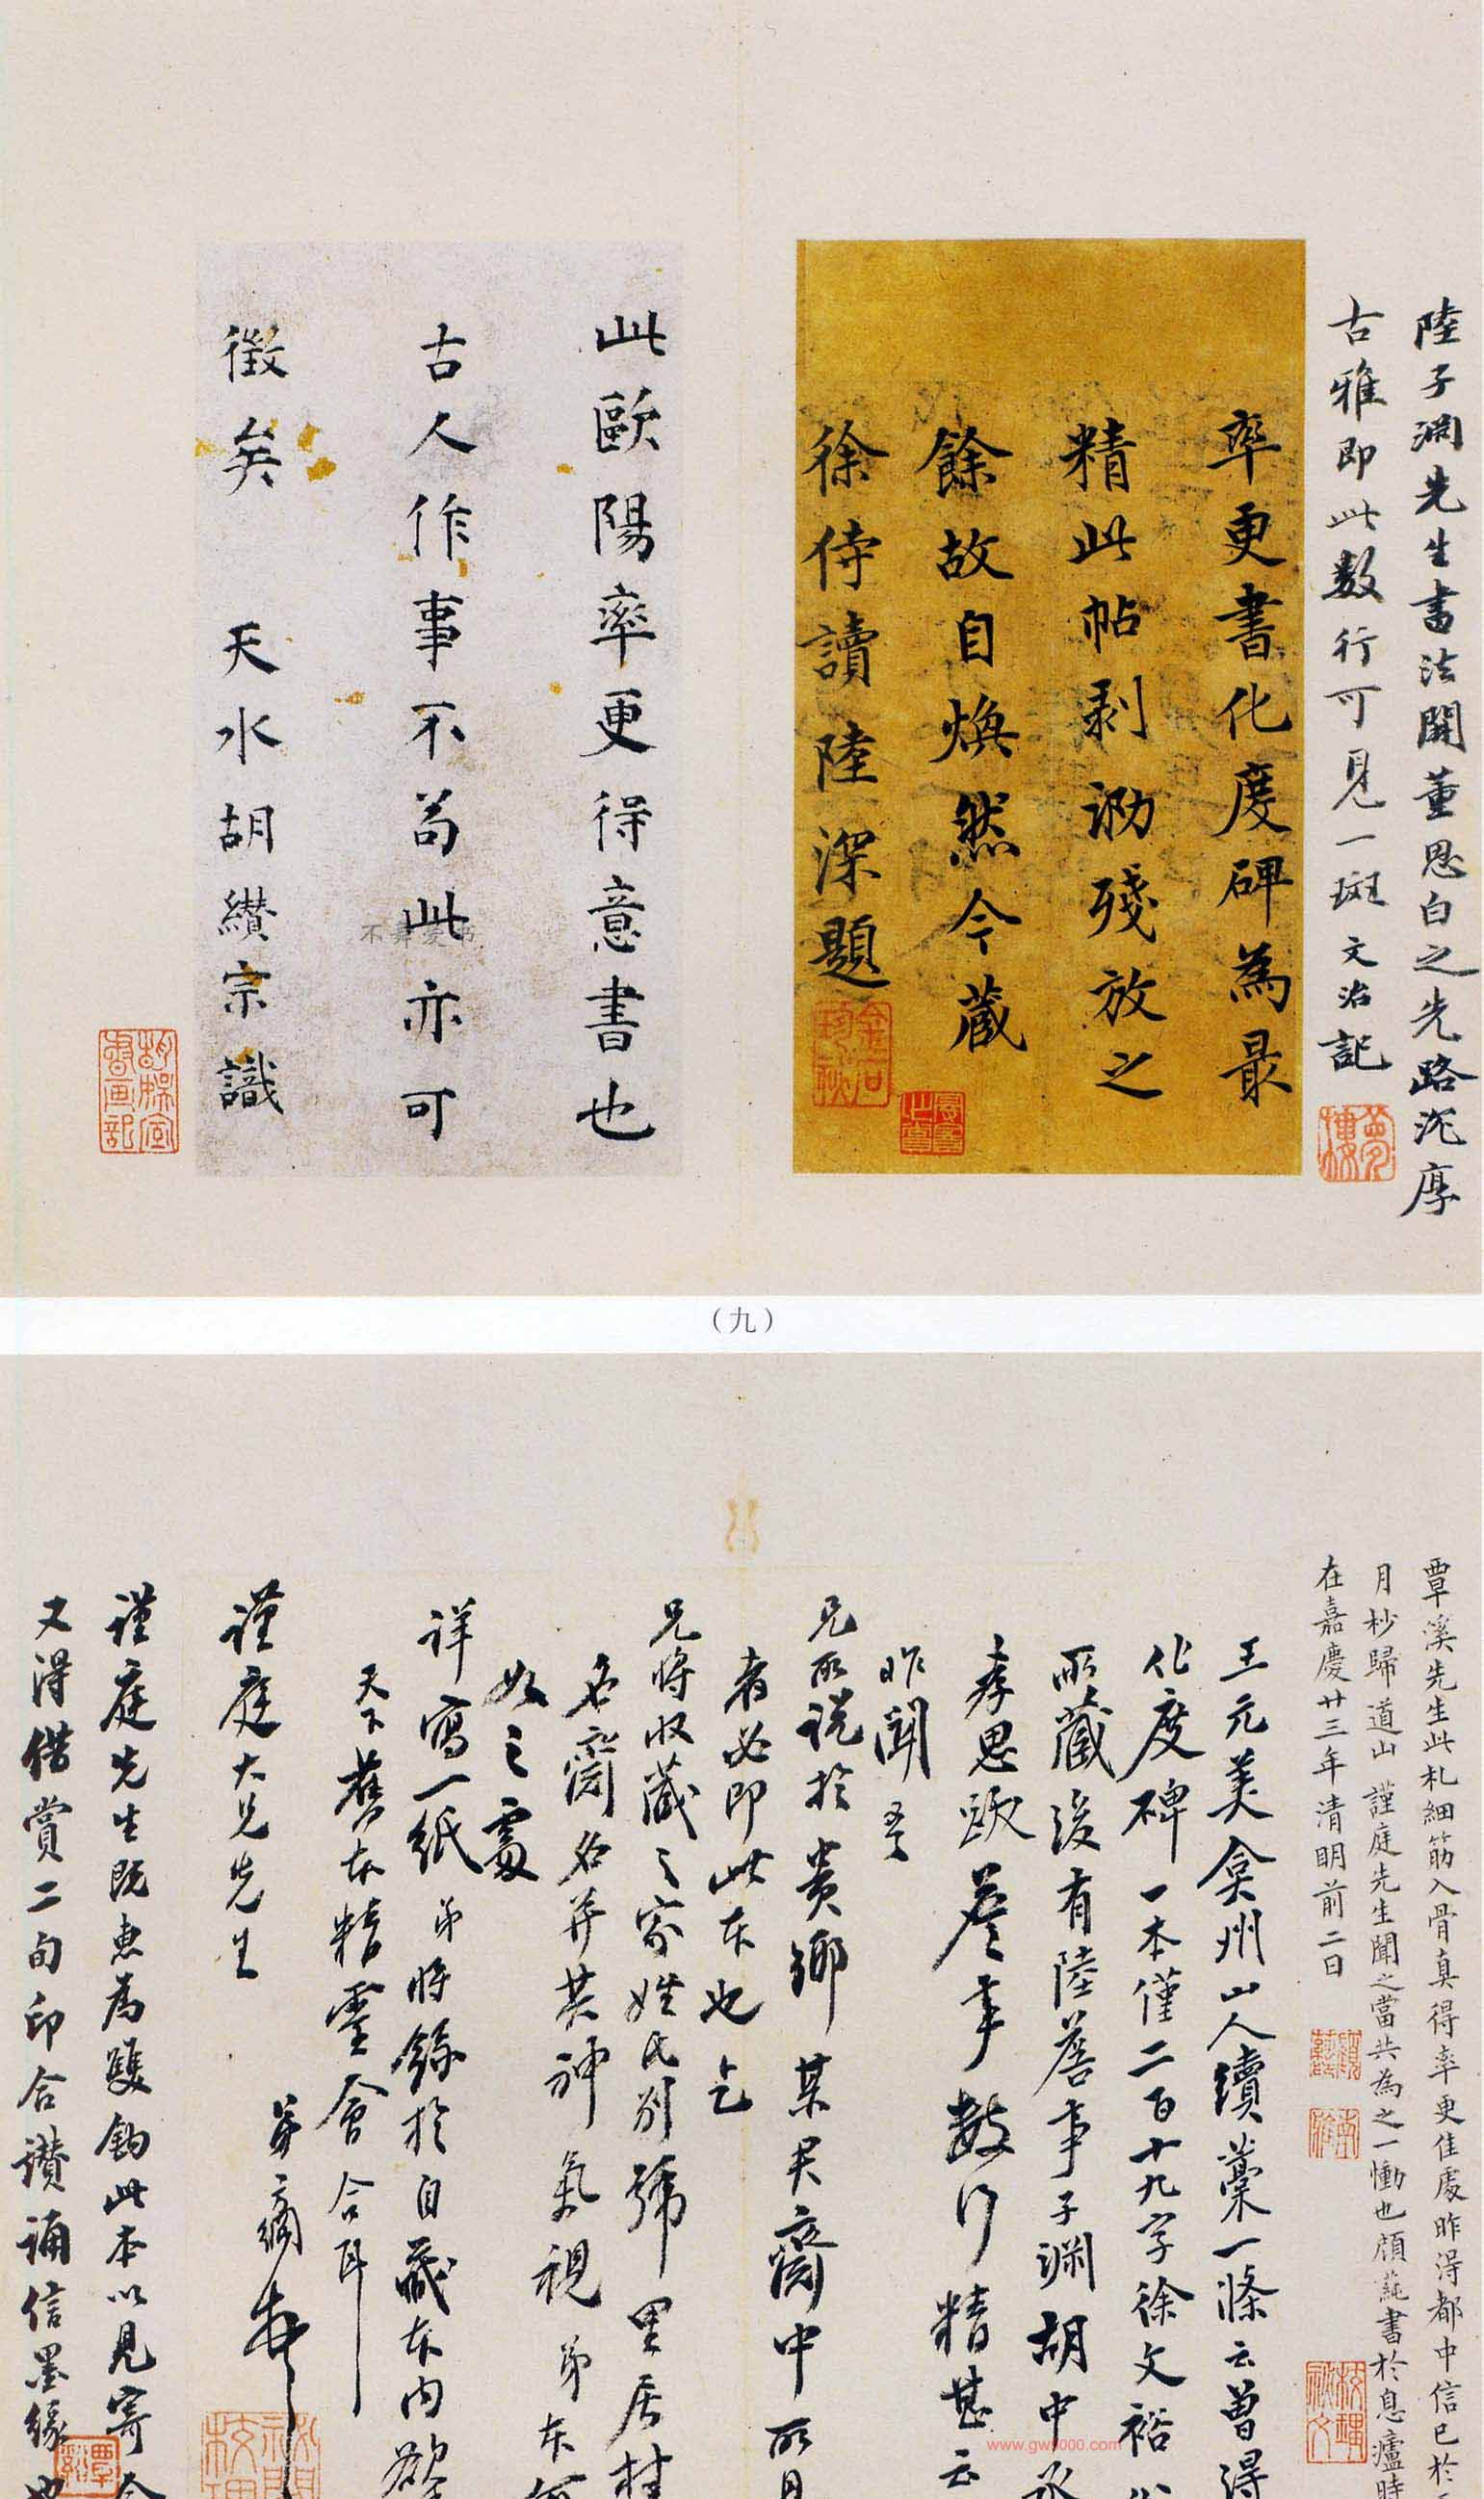 陸子淵先生書法開董思白之先路沉厚
古雅即此数行可見一斑 文治記
率更書化度碑為最
精此帖剥泐殘放之
餘故自煥然今藏
徐侍讀陸深題
此歐陽率更得意書也
古人作事不苟此亦可
徵矣 天水胡纘宗識
不舞爱书
（九）
覃溪先生此札細筋入骨真得率更佳處昨得都中信已於
月杪歸道山 謹庭先生聞之當共為之一慟也顧蒓書於息廬時
在嘉慶廿三年清明前二日
王元美弇州山人續藁一條云曾得
化度碑一本僅二百十九字徐文裕
所藏後有陸詹事子渊胡中丞
孝思歐詹事數行精甚云
昨聞
兄所说於貴鄉某君齋中所見
者必即此本也乞
兄將收藏之家姓氏别號里居
名齋名并其神氣視弟本何
如之處
詳寫一紙弟將録於自藏本内欲
天下舊本精靈會合耳
謹庭大兄先生 弟方綱
謹庭先生既惠為雙鈎此本以見寄今
又得借賞二旬印合讃誦信墨緣也
www.gw8000.com